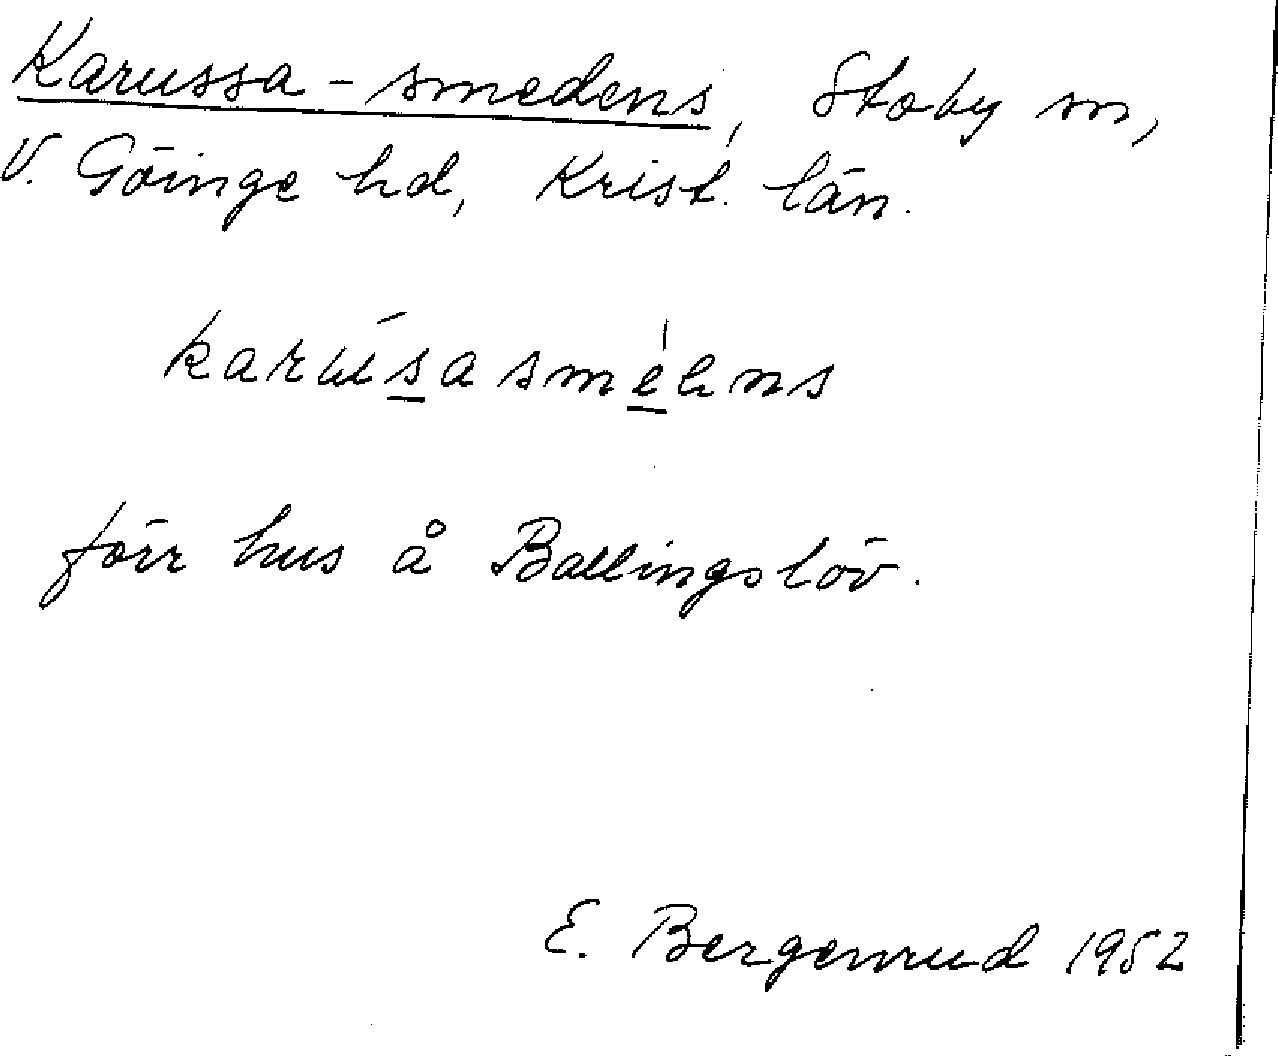 Karussa-smedens, Stoby sn,
V. Göinge hd, Krist. län.
karusasmehns
förr hus å Ballingslöv.
E. Bergenrud 1952